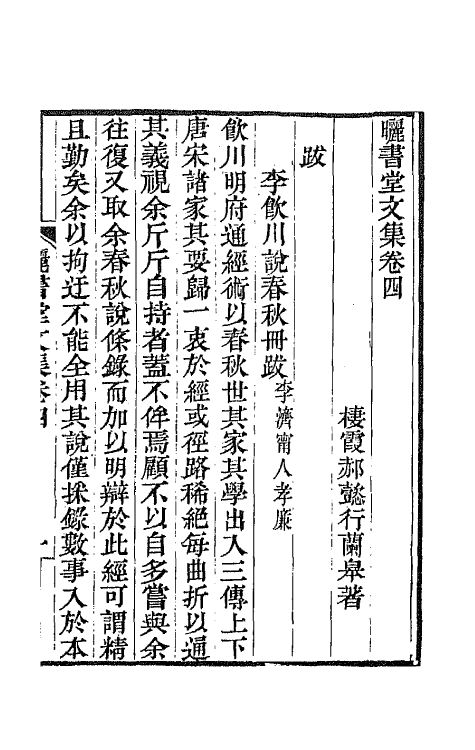 曬書堂文集卷四
棲霞郝懿行蘭皋著
跋
李飮川說春秋冊跋李濟甯人孝廉
飮川明府通經術以春秋世其家其學出入三傳上下
唐宋諸家其要歸一衷於經或徑路稀絕每曲折以通
其義視余斤斤自持者蓋不侔焉顧不以自多嘗與余
往復又取余春秋說條錄而加以明辯於此經可謂精
且勤矣余以拘迂不能全用其說僅採錄數事入於本
曬書堂文集卷四
一